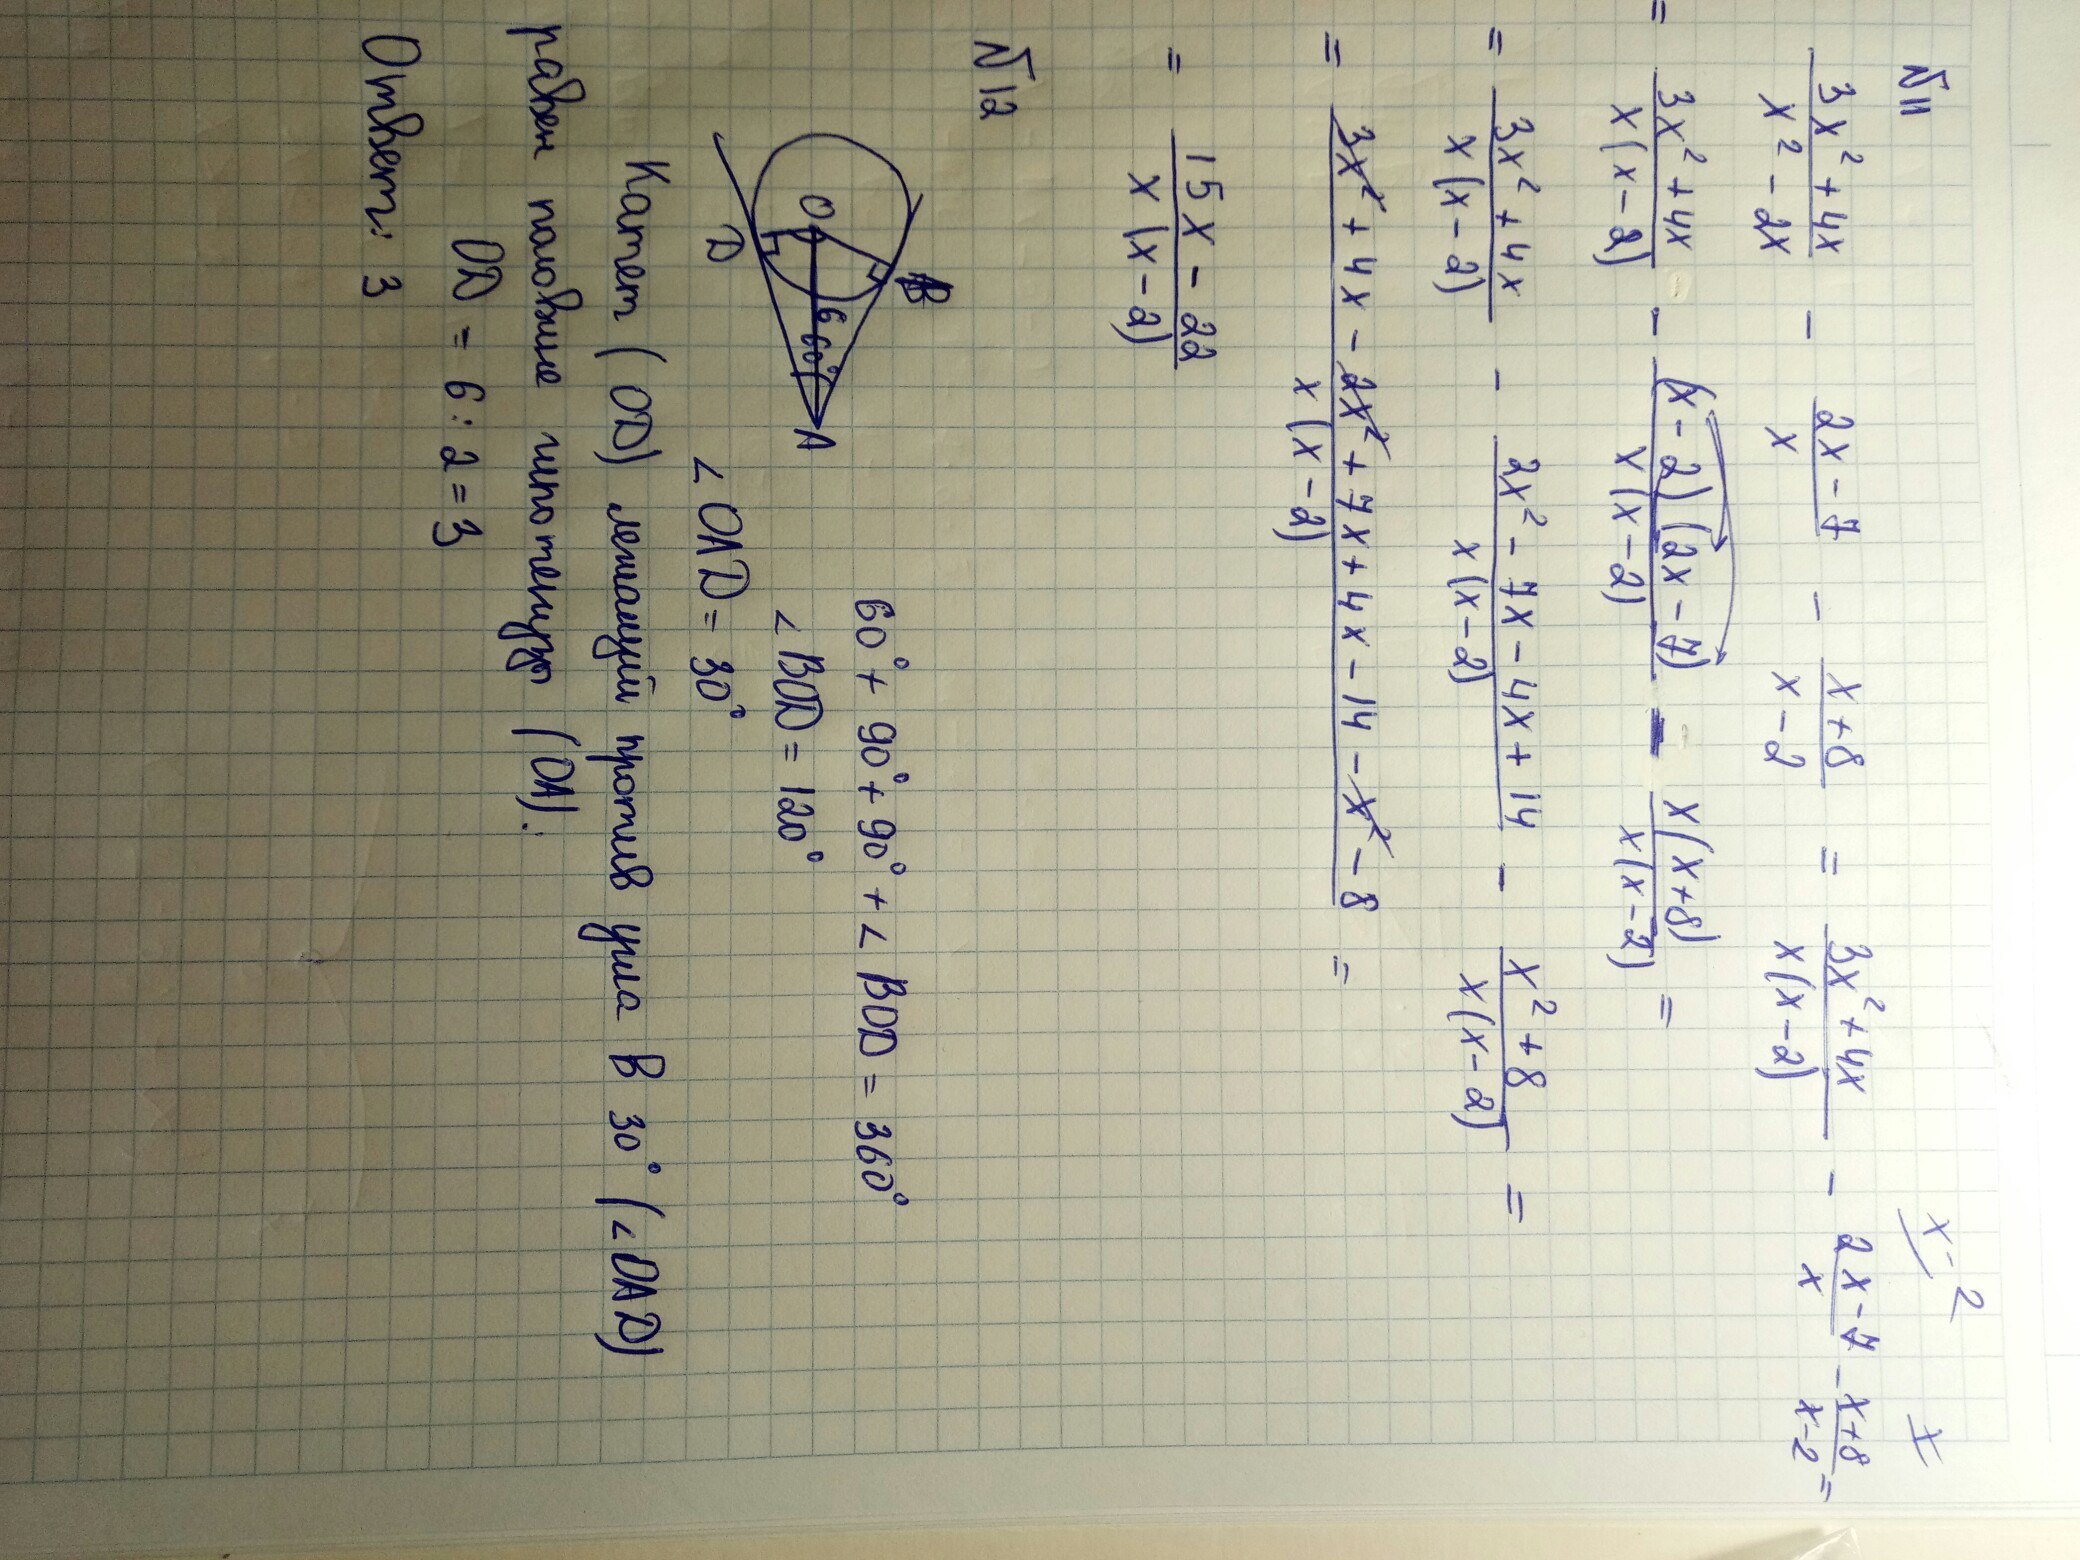 x-2 x
№11
(3x²+4x)/(x²-2x) - (2x-7)/x - (x+8)/(x-2) = (3x²+4x)/(x(x-2)) - (2x-7)/x - (x+8)/(x-2) =
= (3x²+4x)/(x(x-2)) - ((x-2)(2x-7))/(x(x-2)) - (x(x+8))/(x(x-2)) =
= (3x²+4x)/(x(x-2)) - (2x²-7x-4x+14)/(x(x-2)) - (x²+8)/(x(x-2)) =
= (3x²+4x-2x²+7x+4x-14-x²-8)/(x(x-2)) =
= (15x-22)/(x(x-2))
№12
B
O 6 60° A
D
60°+90°+90°+∠BOD=360°
∠BOD=120°
∠OAD=30°
Катет (OD) лежащий против угла в 30° (∠OAD)
равен половине гипотенузы (OA).
OD = 6:2=3
Ответ: 3